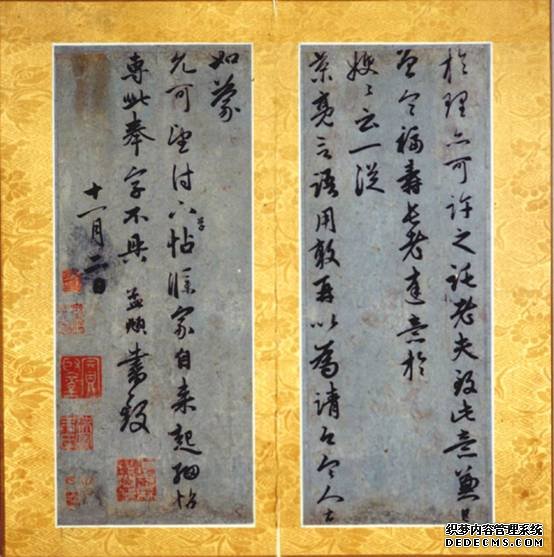 於理亦可許之託老夫致此意兼已
曾令福壽長老達意於
嫂〻云一從
葉亮言語用敢再以為請
如蒙
允可望付 帖 家自來起細帖
專此奉字不具 孟頫書致
十一月二日
织梦内容管理系统
DEDECMS.COM